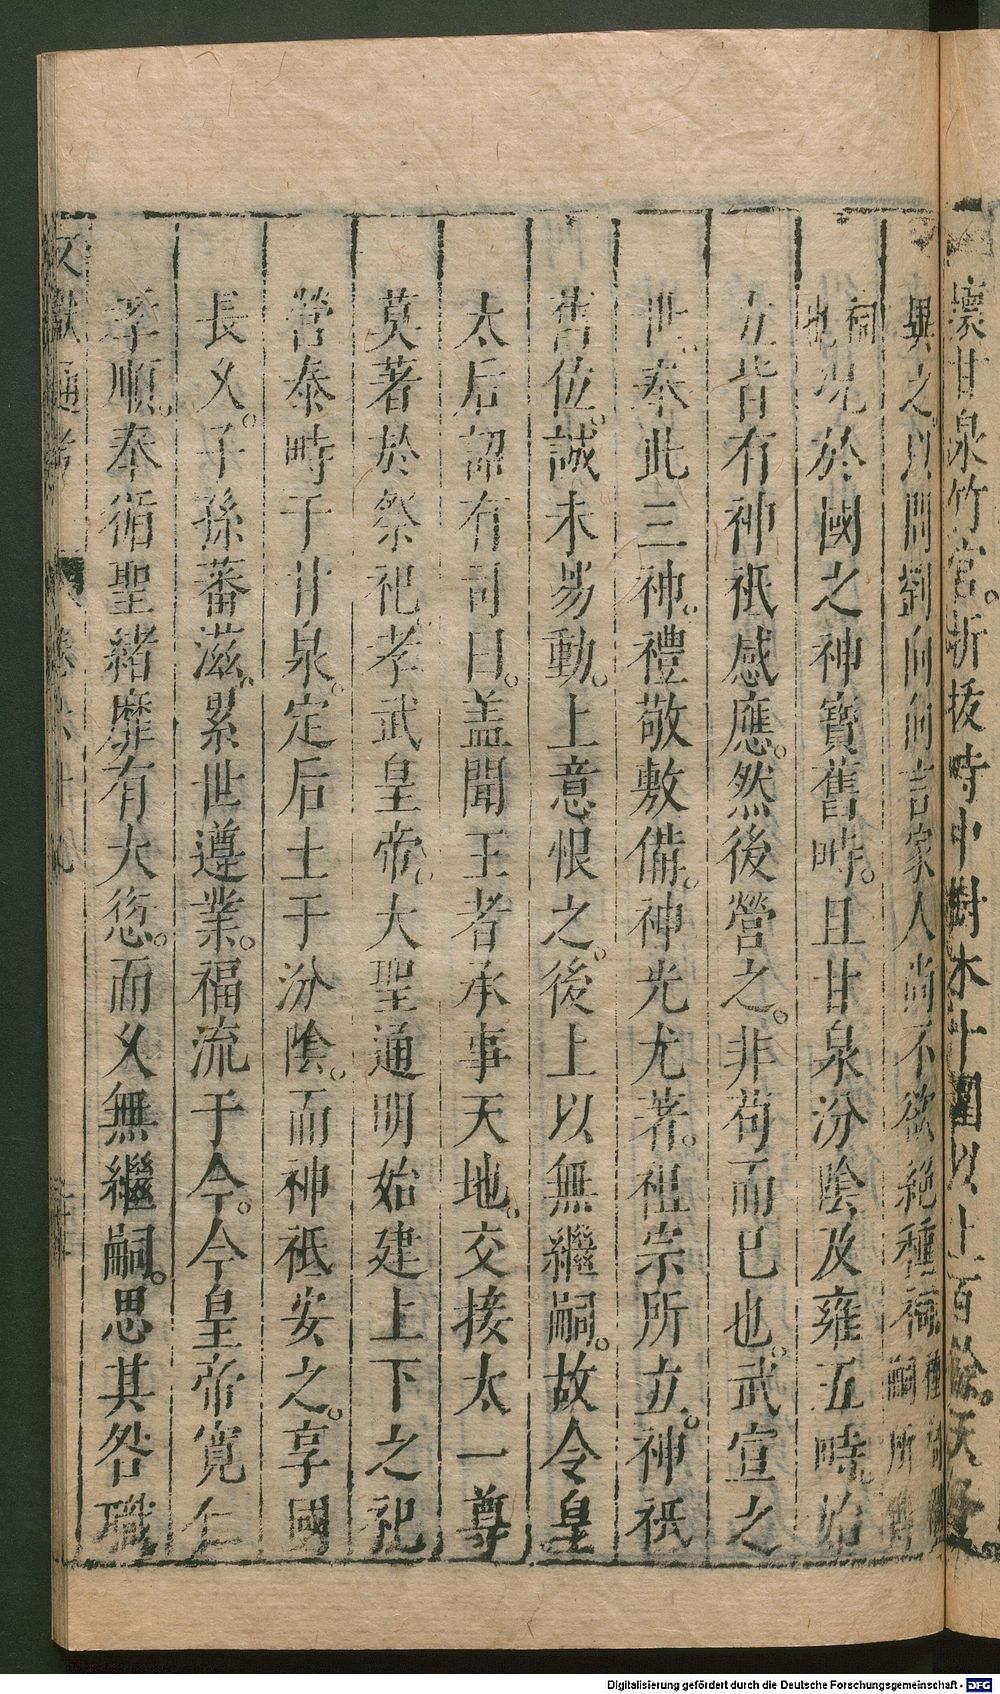 壞甘泉竹宮。折拔畤中樹木十圍以上百餘。天子
異之。以問劉向向言家人尚不欲絕種祠種祠繼嗣所
祠也況於國之神寶舊畤。且甘泉汾陰及雍五畤。始
立皆有神祇感應。然後營之。非苟而已也。武宣之
世。奉此三神。禮敬敷備。神光尤著。祖宗所立。神祇
舊位。誠未易動。上意恨之。後上以無繼嗣。故令皇
太后詔有司曰。盖聞王者承事天地。交接太一尊
莫著於祭祀。孝武皇帝。大聖通明始建上下之祀
營泰畤于甘泉。定后土于汾陰。而神祇安之。享國
長久。子孫蕃滋。累世遵業。福流于今。今皇帝寬仁
孝順。奉循聖緒靡有大愆。而久無繼嗣。思其咎職
文獻通考
Digitalisierung gefördert durch die Deutsche Forschungsgemeinschaft - DFG